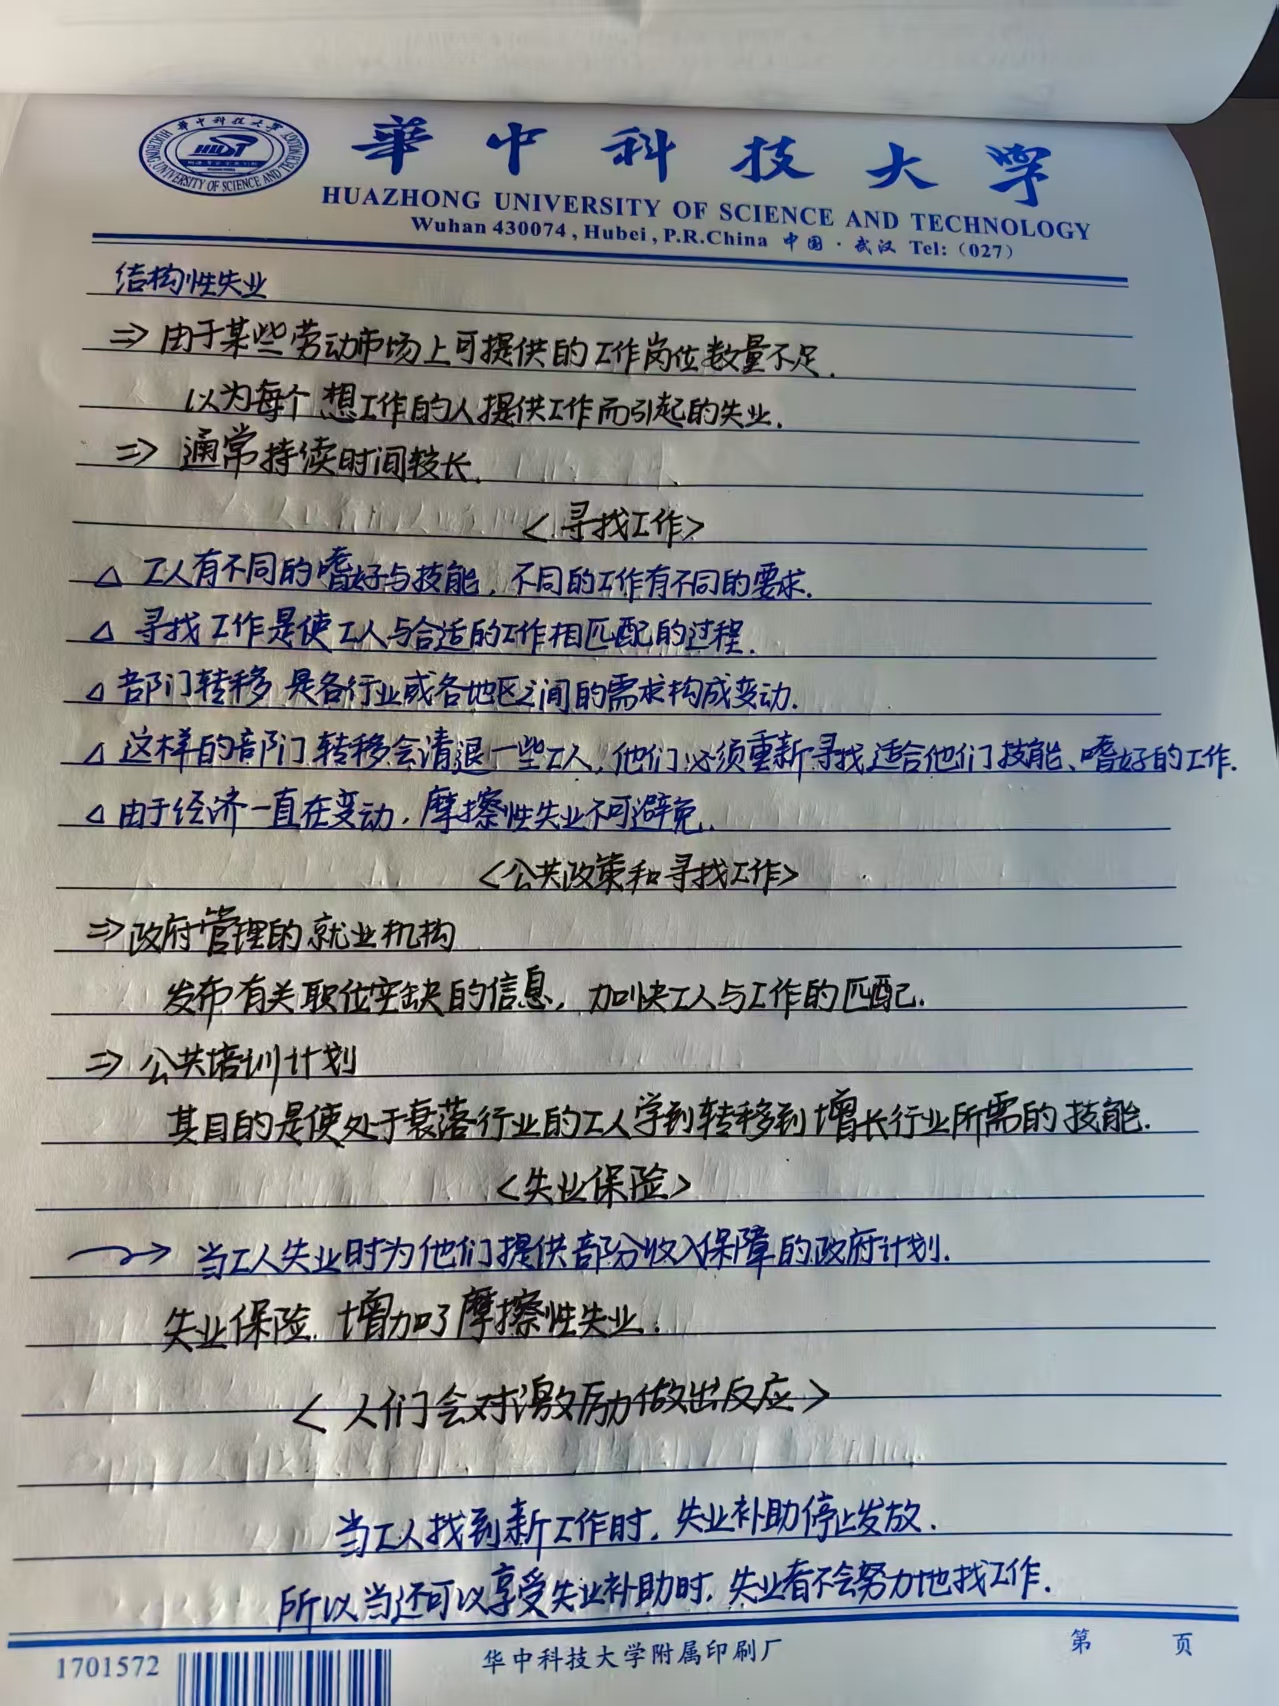 華中科技大学
HUAZHONG UNIVERSITY OF SCIENCE AND TECHNOLOGY
Wuhan 430074, Hubei, P.R.China 中国·武汉 Tel:(027)
结构性失业
⇒ 由于某些劳动市场上可提供的工作岗位数量不足.
以为每个想工作的人提供工作而引起的失业.
⇒ 通常持续时间较长.
<寻找工作>
△ 工人有不同的嗜好与技能,不同的工作有不同的要求.
△ 寻找工作是使工人与合适的工作相匹配的过程.
△ 部门转移是各行业或各地区之间的需求构成变动.
△ 这样的部门转移会清退一些工人,他们必须重新寻找适合他们技能、嗜好的工作.
△ 由于经济一直在变动,摩擦性失业不可避免.
<公共政策和寻找工作>
⇒ 政府管理的就业机构
发布有关职位空缺的信息,加快工人与工作的匹配.
⇒ 公共培训计划
其目的是使处于衰落行业的工人学到转移到增长行业所需的技能.
<失业保险>
→ 当工人失业时为他们提供部分收入保障的政府计划.
失业保险增加了摩擦性失业.
<人们会对激励做出反应>
当工人找到新工作时,失业补助停止发放.
所以当还可以享受失业补助时,失业者不会努力地找工作.
1701572 华中科技大学附属印刷厂 第 页